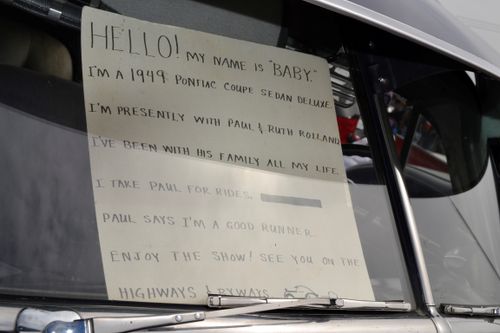 HELLO! MY NAME IS "BABY."
I'M A 1949 PONTIAC COUPE SEDAN DELUXE
I'M PRESENTLY WITH PAUL & RUTH ROLLAND
I'VE BEEN WITH HIS FAMILY ALL MY LIFE.
I TAKE PAUL FOR RIDES.
PAUL SAYS I'M A GOOD RUNNER.
ENJOY THE SHOW! SEE YOU ON THE
HIGHWAYS & BYWAYS